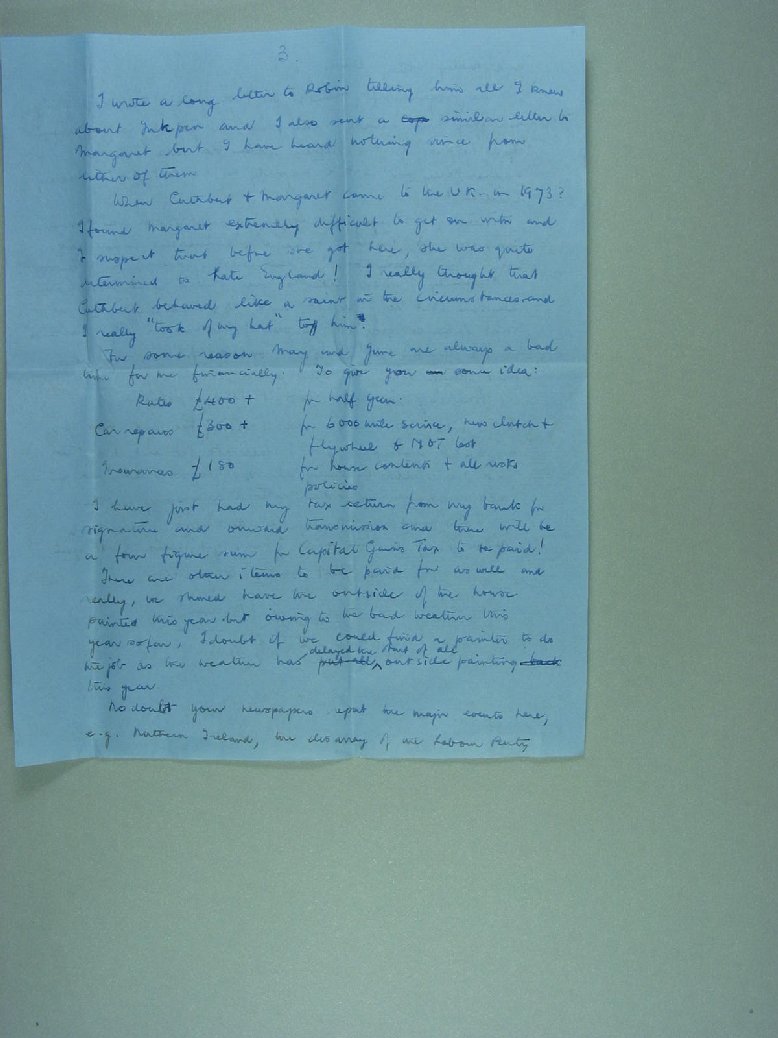 3.
I wrote a long letter to Robin telling him all I knew
about Inkpen and I also sent a cop similar letter to
Margaret but I have heard nothing since from
either of them
When Cuthbert + Margaret came to the U.K. in 1973?
I found Margaret extremely difficult to get on with and
I suspect that before she got here, she was quite
determined to hate England! I really thought that
Cuthbert behaved like a saint in the circumstances and
I really "took off my hat" to him!
For some reason May and June are always a bad
time for me financially. To give you some idea:
Rates £400 + for half year.
Car repairs £300 + for 6000 mile service, new clutch +
flywheel & MOT test
Insurances £180 for house contents + all risks
policies
I have just had my tax return from my bank for
signature and onward transmission and there will be
a four figure sum for Capital Gains Tax to be paid!
There are other items to be paid for as well and
really, we should have the outside of the house
painted this year but owing to the bad weather this
year so far, I doubt if we could find a painter to do
delayed the start of all
the job as the weather has put all outside painting back
this year
No doubt your newspapers report the major events here,
e.g. Northern Ireland, the disarray of the Labour Party